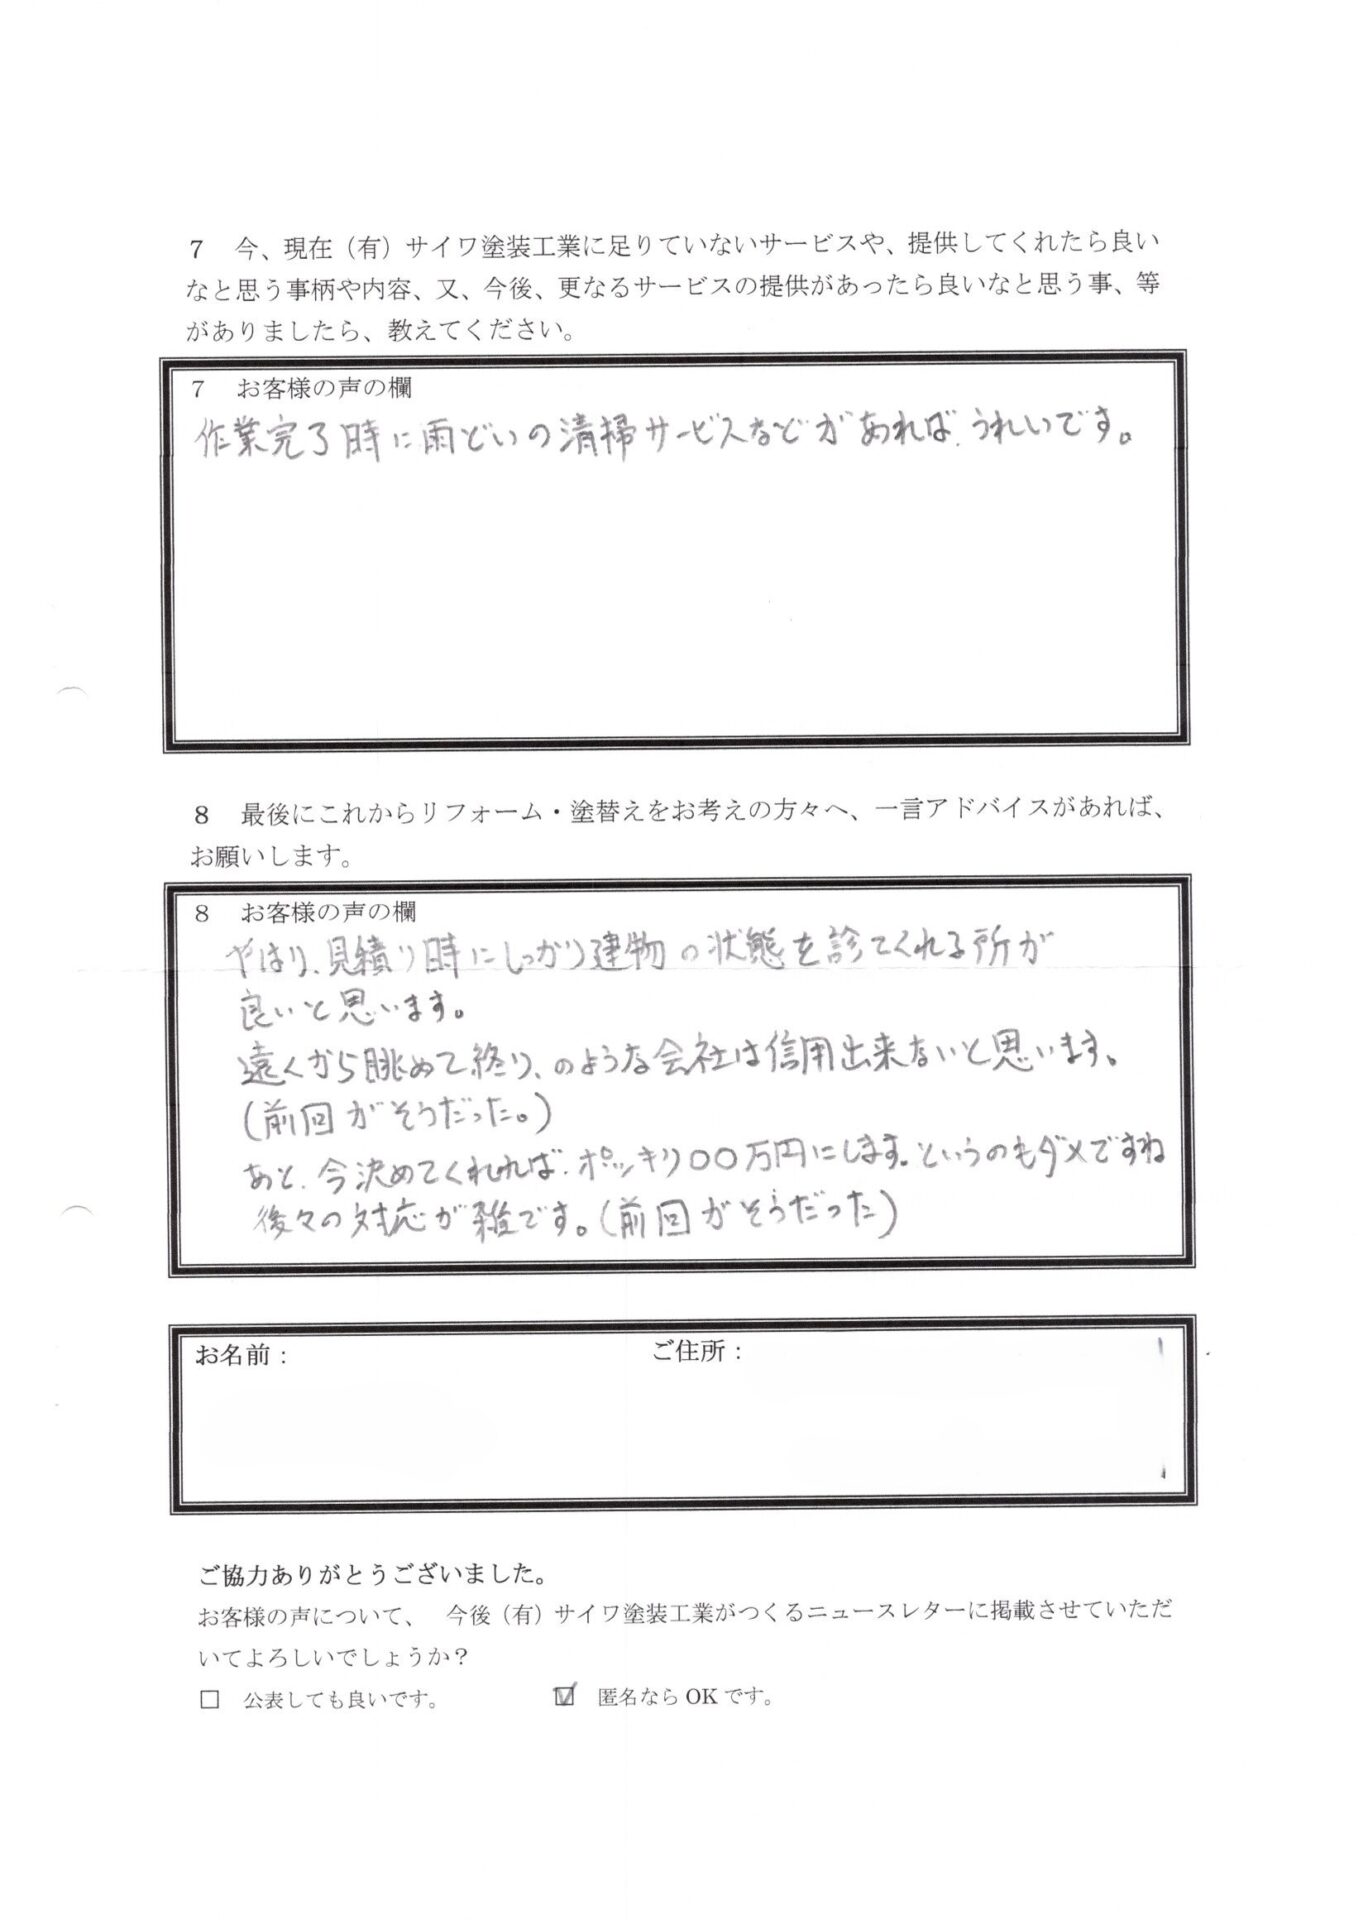 7 今、現在（有）サイワ塗装工業に足りていないサービスや、提供してくれたら良い
なと思う事柄や内容、又、今後、更なるサービスの提供があったら良いなと思う事、等
がありましたら、教えてください。
7 お客様の声の欄
作業完了時に雨どいの清掃サービスなどがあれば、うれいです。
8 最後にこれからリフォーム・塗替えをお考えの方々へ、一言アドバイスがあれば、
お願いします。
8 お客様の声の欄
やはり、見積り時にしっかり建物の状態を診てくれる所が
良いと思います。
遠くから眺めて終り、のような会社は信用出来ないと思います。
(前回がそうだった。)
あと、今決めてくれれば、ポッキリ〇〇万円にします。というのもダメですね
後々の対応が雑です。(前回がそうだった)
お名前： ご住所：
ご協力ありがとうございました。
お客様の声について、 今後（有）サイワ塗装工業がつくるニュースレターに掲載させていただ
いてよろしいでしょうか？
□ 公表しても良いです。 ☑ 匿名なら OK です。